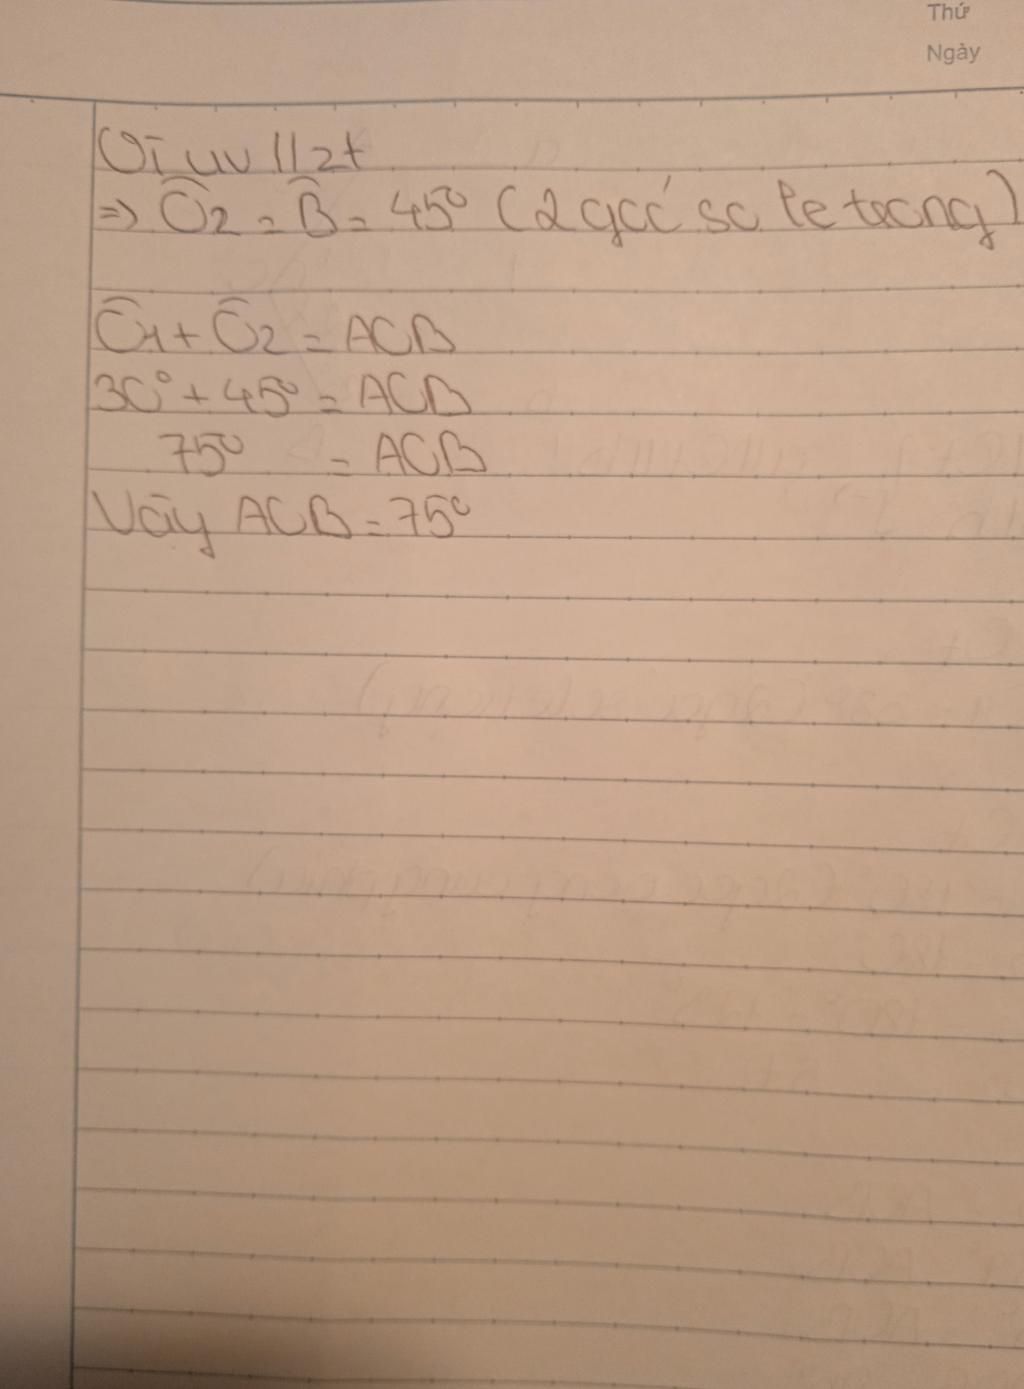 Thứ
Ngày
Vì uv // zt
=> Ô2 = B̂ = 45° (2 góc so le trong)
Ô1 + Ô2 = AOB
30° + 45° = AOB
75° = AOB
Vậy AOB = 75°